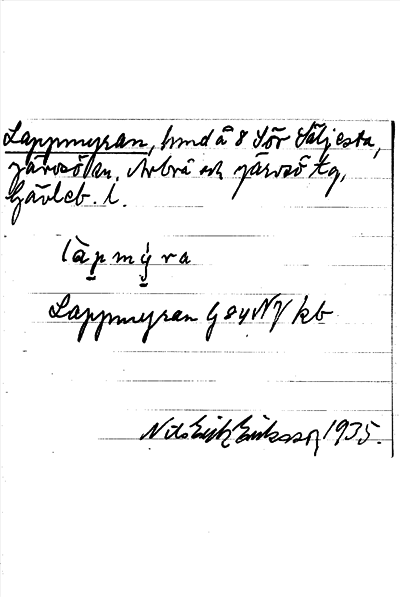 Lappmyran, hmd å 8 Sör Säljesta,
Järvsö sn. Arbrå och Järvsö tg,
Gävleb. l.
làpmýra
Lappmyran G 84 NV kb
Nils Erik Eriksson 1935.